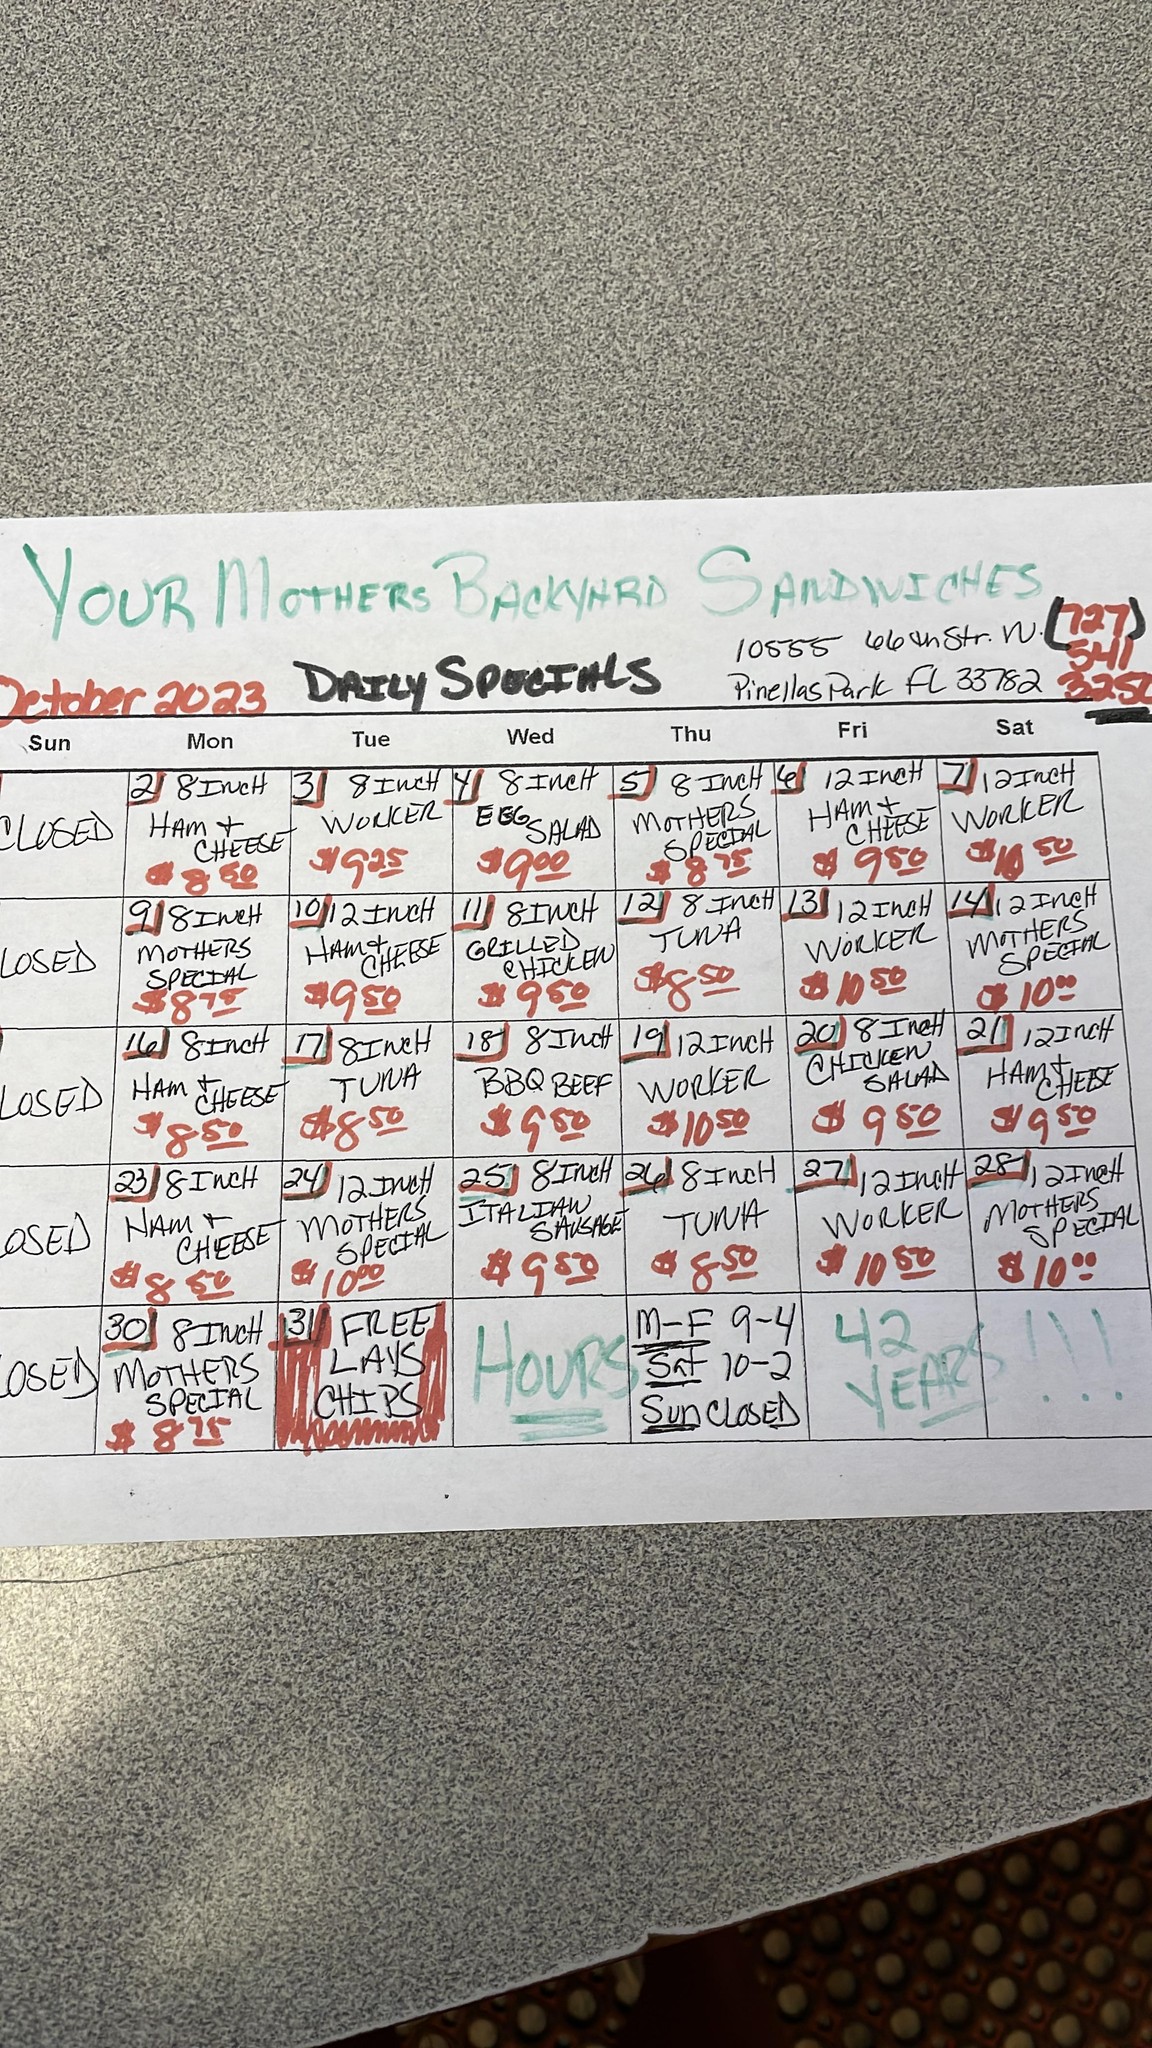 YOUR MOTHERS BACKYARD SANDWICHES
10555 66th Str. N. (727)
541
October 2023 DAILY SPECIALS Pinellas Park FL 33782
Sun Mon Tue Wed Thu Fri Sat
CLOSED
2 8 INCH
HAM +
CHEESE
$8 50
3 8 INCH
WORKER
$9 25
4 8 INCH
EGG SALAD
$9 00
5 8 INCH
MOTHERS
SPECIAL
$8 75
6 12 INCH
HAM +
CHEESE
$9 50
7 12 INCH
WORKER
$10 50
LOSED
9 8 INCH
MOTHERS
SPECIAL
$8 75
10 12 INCH
HAM +
CHEESE
$9 50
11 8 INCH
GRILLED
CHICKEN
$9 50
12 8 INCH
TUNA
$8 50
13 12 INCH
WORKER
$10 50
14 12 INCH
MOTHERS
SPECIAL
$10 00
LOSED
16 8 INCH
HAM +
CHEESE
$8 50
17 8 INCH
TUNA
$8 50
18 8 INCH
BBQ BEEF
$9 50
19 12 INCH
WORKER
$10 50
20 8 INCH
CHICKEN
SALAD
$9 50
21 12 INCH
HAM +
CHEESE
$9 50
OSED
23 8 INCH
HAM +
CHEESE
$8 50
24 12 INCH
MOTHERS
SPECIAL
$10 00
25 8 INCH
ITALIAN
SAUSAGE
$9 50
26 8 INCH
TUNA
$8 50
27 12 INCH
WORKER
$10 50
28 12 INCH
MOTHERS
SPECIAL
$10 00
LOSED
30 8 INCH
MOTHERS
SPECIAL
$8 75
31 FREE
LAYS
CHIPS
HOURS
M-F 9-4
Sat 10-2
Sun CLOSED
42
YEARS !!!